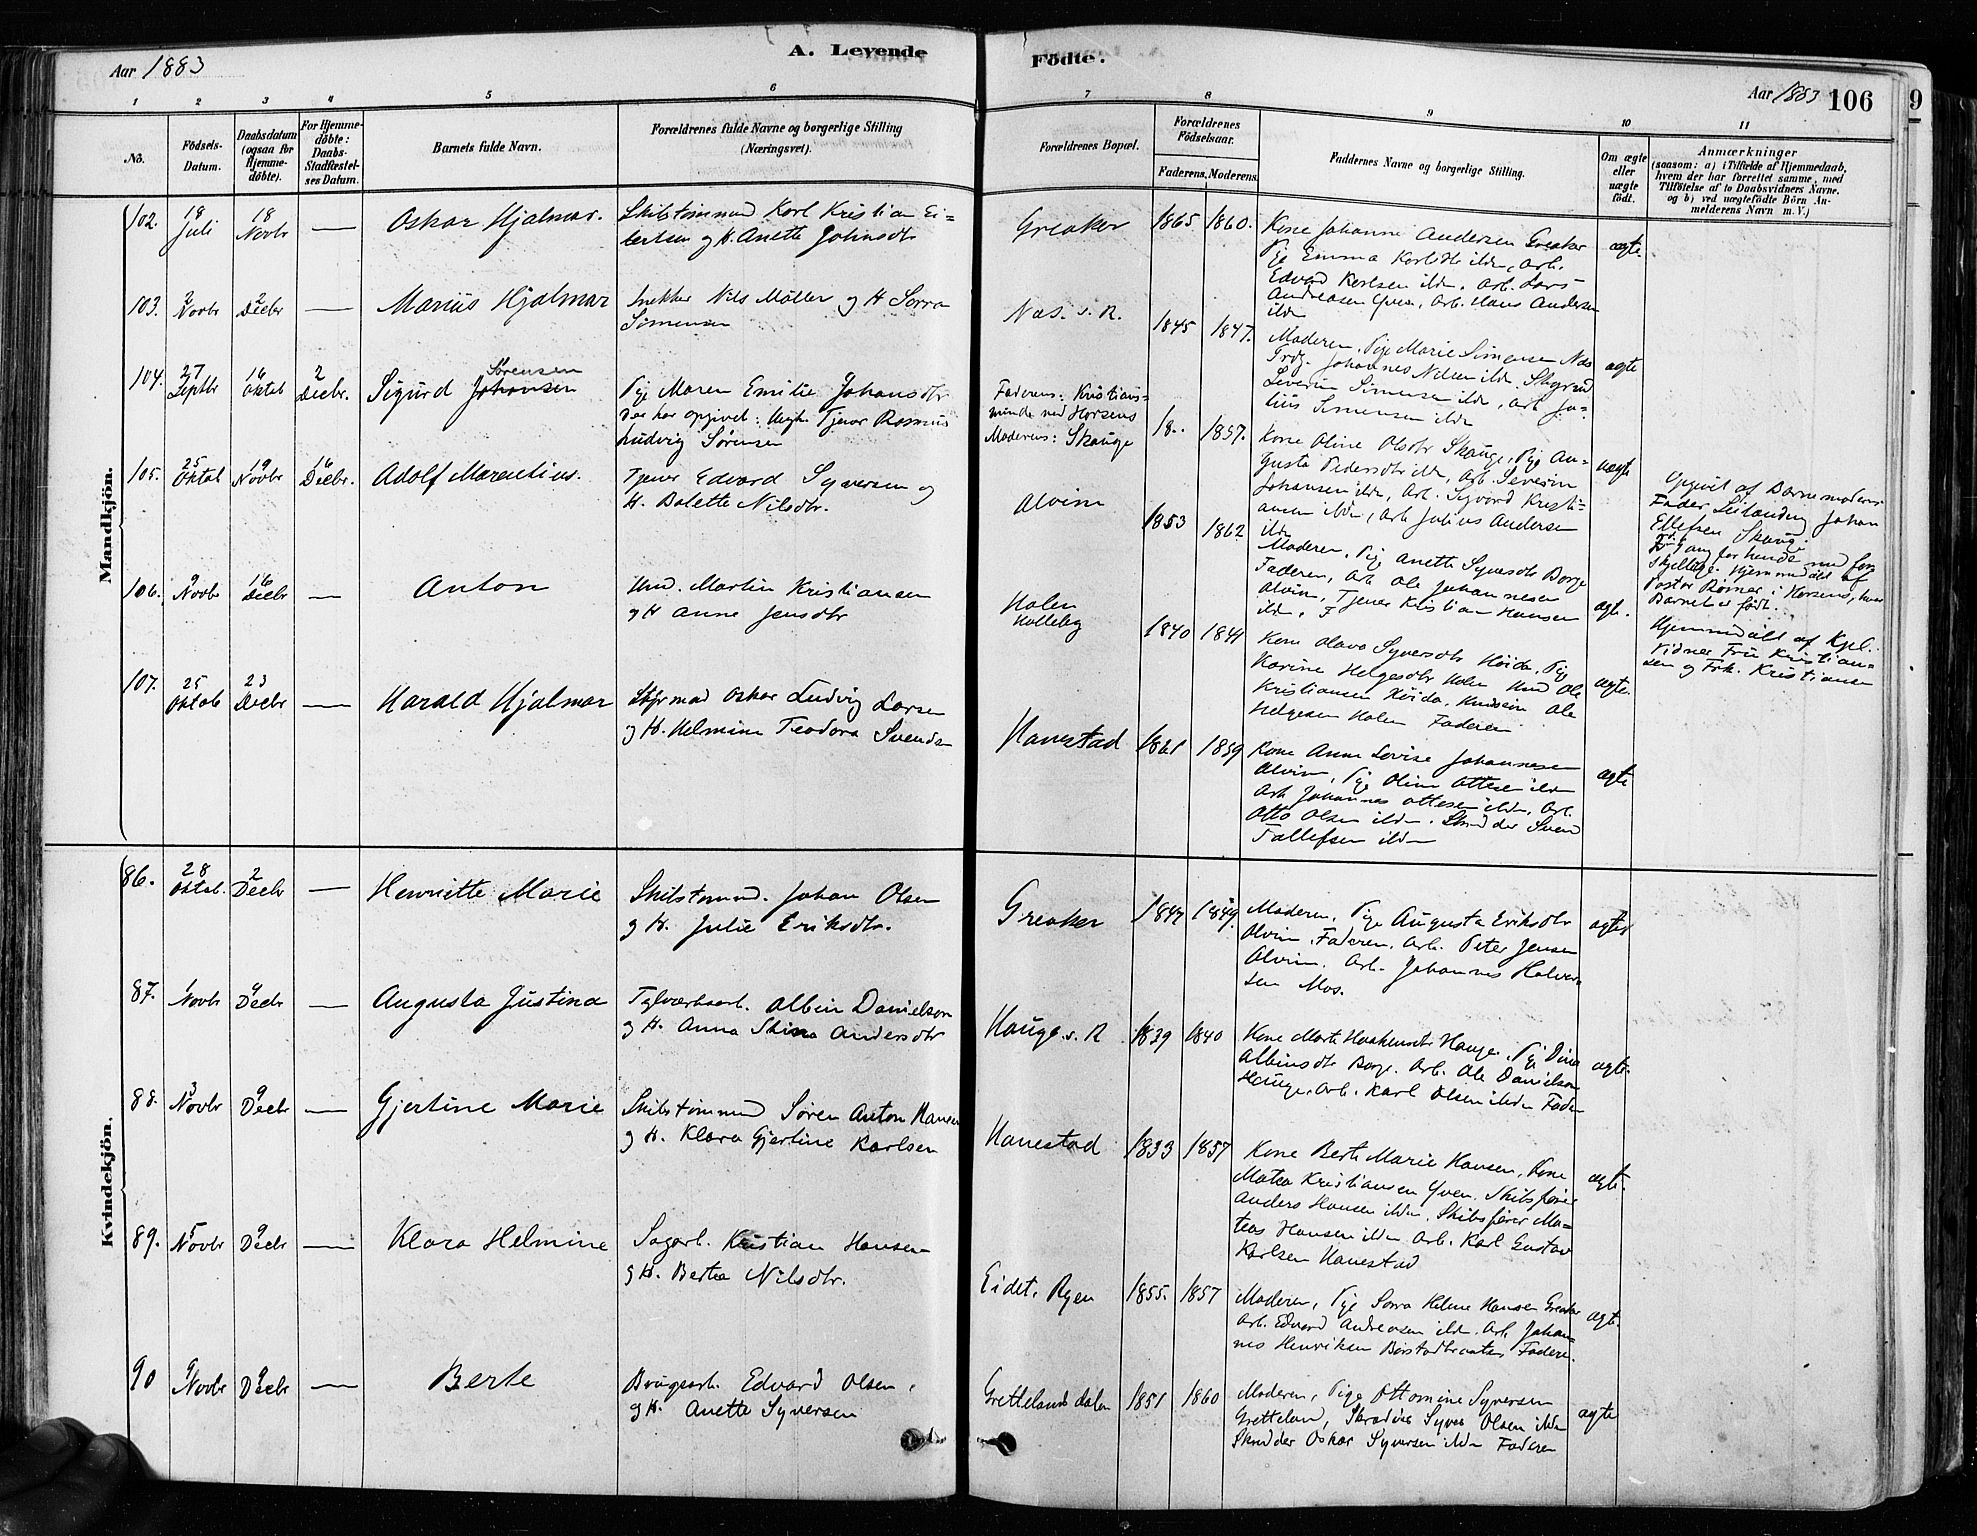 A. Levende
Fødte.
Aar 1883
Aar 1883
106
9
1
2
3
4
5
6
7
8
9
10
11
No.
Fødsels-
Datum.
Daabsdatum
(ogsaa for
Hjemme-
døbte).
For Hjemme-
døbte:
Daabs-
Stadfæstel-
ses Datum.
Barnets fulde Navn.
Forældrenes fulde Navne og borgerlige Stilling
(Næringsvei).
Forældrenes Bopæl.
Forældrenes
Fødselsaar.
Faderens.
Moderens.
Faddernes Navne og borgerlige Stilling.
Om ægte
eller
uægte
født.
Anmærkninger
(saasom: a) i Tilfælde af Hjemmedaab,
hvem der har forrettet samme, med
Tilføielse af to Daabsvidners Navne.
og b) ved uægtefødte Børn An-
melderens Navn m. V.)
Mandkjön.
102.
18
Juli
18
Novbr
Oskar Hjalmar.
Skibstømmd Karl Kristian Ei-
bertsen og H. Anette Johnsdtr
Greaker
1865
1860.
Kone Johanne Andersen Greaker
Pige Emma Karlsdtr ildn, Arb.
Edvard Karlsen ildn. Arb. Lars
Andreasen Yven, Arb. Hans Andersen
ildn
ægte.
103.
2
Novbr
2
Decbr
Marius Hjalmar
Snekker Nils Møller og H Sorra
Simensen
Næs. s. R.
1845
1847.
Moderen, Pige Marie Simensen Næs
Grdg. Johannes Nilsen ildn, Skygrd
Severin Simensen ildn, Arb. Ju-
lius Simensen ildn
ægte
104.
27
Septbr
16
Oktob
2
Decbr.
Sørensen
Sigurd Johansen
Pige Maren Emilie Johansdtr
Der har opgivet: Ungk. Tjener Rasmus
Ludvig Sørensen
Faderens: Kristians-
minde ved Horsens
Moderens: Skauge
18..
1857.
Kone Oline Olsdtr Skauge, Pige Au-
gusta Pedersdtr ildn, Arb. Severin
Johansen ildn, Arb. Sigvard Kristi-
ansen ildn, Arb Julius Andersen
ildn
uægte
Opgivet af Barnemoderens
Fader Leilænding Johan
Ellefsen Skauge
Gang for hende med for-
skjellige. Hjemmedøbt af
Pastor Bømer i Horsens, hvor
Barnet er født.
105.
25
Oktob
19
Novbr
16
Decbr.
Adolf Marentius.
Tjener Edvard Syversen og
H. Bolette Nilsdtr.
Alvim
1853
1862
Moderen, Pige Anette Syversdtr Borge
Faderen, Arb Ole Johannesen
Alvim, Tjener Kristian Hansen
ildn.
ægt.
Hjemmedøbt af Kpel.
Vidner Fru Kristian-
sen og Frk. Kristiansen
106.
9
Novbr
16
Decbr
Anton
Hmd. Martin Kristiansen
og H Anne Jensdtr
Holen
Holleby
1840
1844
Kone Olava Syversdtr Høida, Pige
Karine Helgesdtr Holen Hmd Ole
Kristiansen Høida, Husein Ole
Helgesen Holen Faderen
ægte.
107.
25
Oktob
23
Decbr
Harald Hjalmar
Styrmad Oskar Ludvig Larsen
og H. Helmine Teodora Svends
Hanestad
1861
1859
Kone Anne Lovise Johannesen
Alvim, Pige Oline Ottesen ildn
Arb Johannes Ottesen ildn, Arb.
Otto Olsen ildn. Skrædder Svend
Tallefsen ildn
ægte
Kvindekjön.
86.
28
Oktob.
2
Decbr
Henriette Marie
Skibstømmd. Johan Olsen
og H. Julie Eriksdtr.
Greaker
1847
1849.
Moderen, Pige Augusta Eriksdtr
Alvim. Faderen. Arb. Peter Jensen
Alvim. Arb. Johannes Halvor
sen Mos.
ægte
87.
1
Novbr
9
Decbr
Augusta Justina
Teglværksarb. Albin Danielson
og H. Anna Stina Andersdtr
Hauge. s. R
1839
1840
Kone Marte Haakensdtr Hauge. Pige Dina
Albinsdtr Borge. Arb. Ole Danielson
Hauge. Arb. Karl Olsen ildn Fader
ægte.
88.
3
Novbr
9
Decbr
Gjertine Marie
Skibstømmd Søren Anton Hansen
og H. Klara Gjertine Karlsen
Hanestad
1833
1857
Kone Berte Marie Hansen, Kone
Matea Kristiansen Yven. Skibsfører
Anders Hansen ildn. Skibsfører Ma-
teas Hansen ildn Arb. Karl Gustav
Karlsen Hanestad
ægte.
89.
5
Novbr
9
Decbr
Klara Helmine
Sagarb. Kristian Hansen
og H. Bertea Nilsdtr.
Eidet. Ryen
1855.
1857
Moderen, Pige Sorra Helene Hansen Greaker
Arb. Edvard Andreasen ildn. Arb. Johan-
nes Henriksen Børstadbraaten, Fadere.
ægte.
90
9
Novbr
9
Decbr
Berte
Brugsarb. Edvard Olsen,
og H. Anette Syversen
Grettelands dalen
1851
1860
Moderen, Pige Ottomine Syversen
Gretteland, Skrædder Syver Olsen ildn
Skrædder Oskar Syversen ildn Faderen
ægte